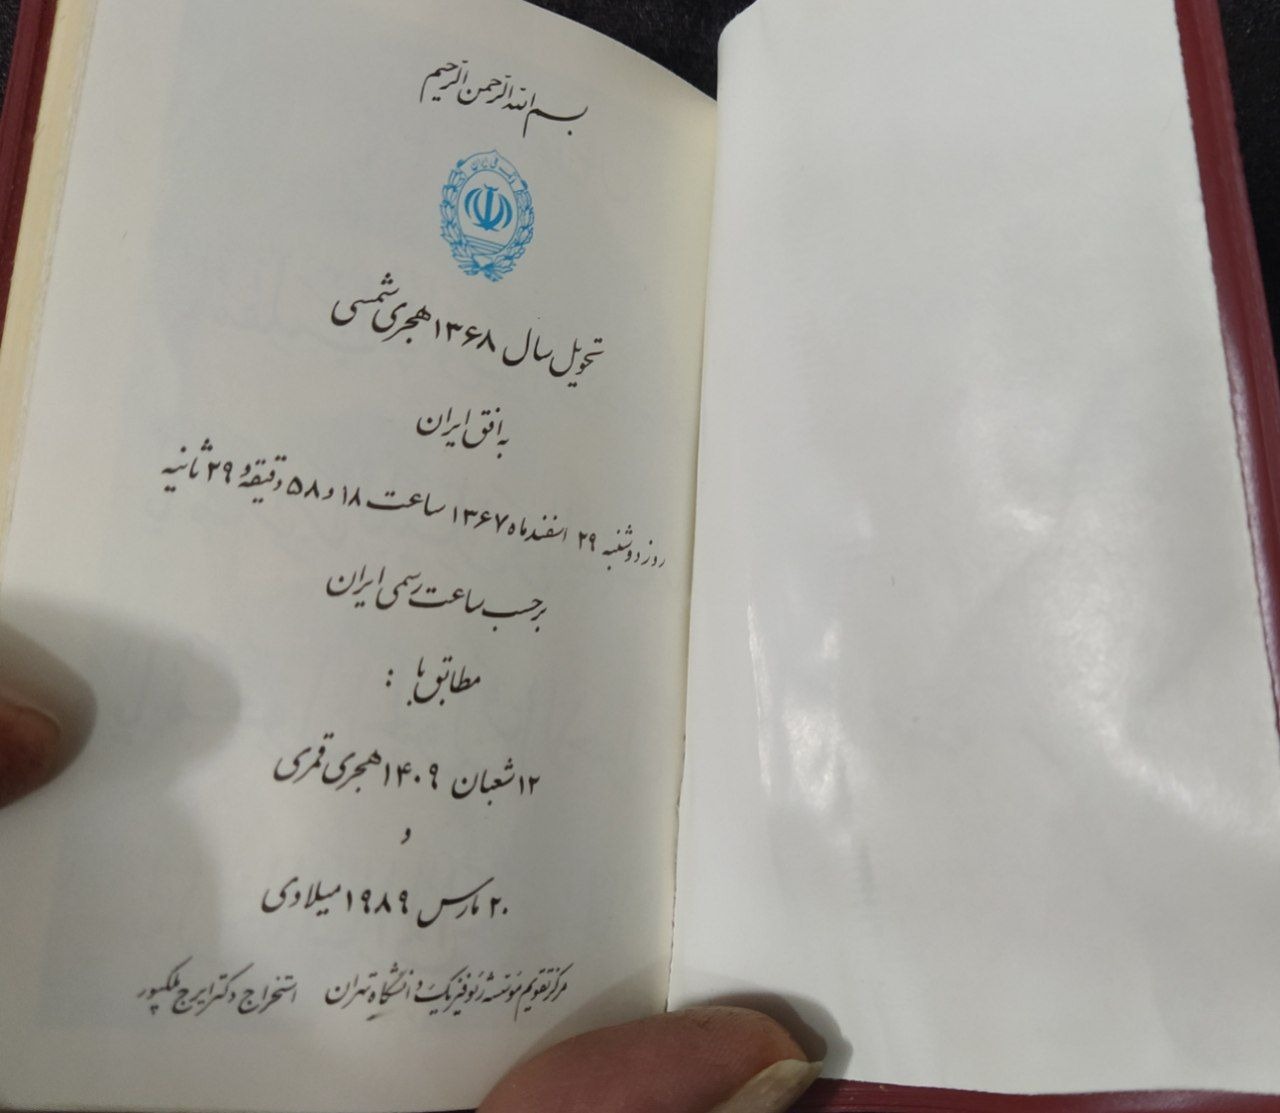 بسم الله الرحمن الرحیم
بانک ملی ایران
تحویل سال ۱۳۶۸ هجری شمسی
به افق ایران
روز دوشنبه ۲۹ اسفندماه ۱۳۶۷ ساعت ۱۸ و ۵۸ دقیقه و ۲۹ ثانیه
برحسب ساعت رسمی ایران
مطابق با :
۱۲ شعبان ۱۴۰۹ هجری قمری
و
۲۰ مارس ۱۹۸۹ میلادی
مرکز تقویم مؤسسه ژئوفیزیک دانشگاه تهران استخراج دکتر ایرج ملکپور